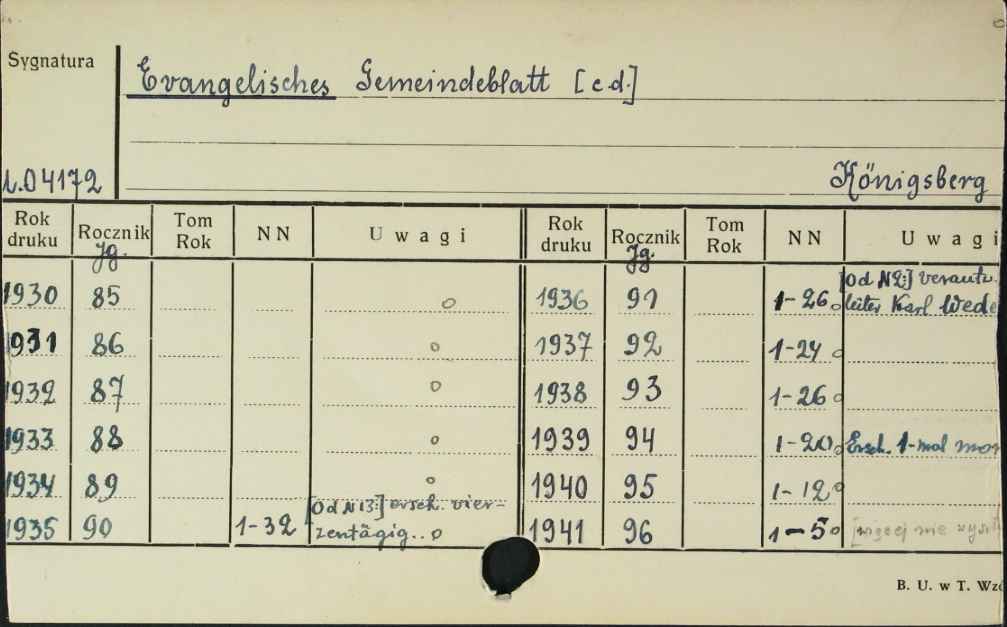 Sygnatura
Evangelisches Gemeindeblatt [c.d.]
L.04172
Königsberg
Rok druku Rocznik Jg. Tom Rok NN Uwagi Rok druku Rocznik Jg. Tom Rok NN Uwagi
1930 85 o 1936 91 1-26 o [Od N 2:] verantw. leiter Karl Wede
1931 86 o 1937 92 1-24 o
1932 87 o 1938 93 1-26 o
1933 88 o 1939 94 1-20 o Ersch. 1-mal mon
1934 89 o 1940 95 1-12 o
1935 90 1-32 [Od N 13:] ersch. vier-zentägig.. o 1941 96 1-5 o [więcej nie
B. U. w T. Wz